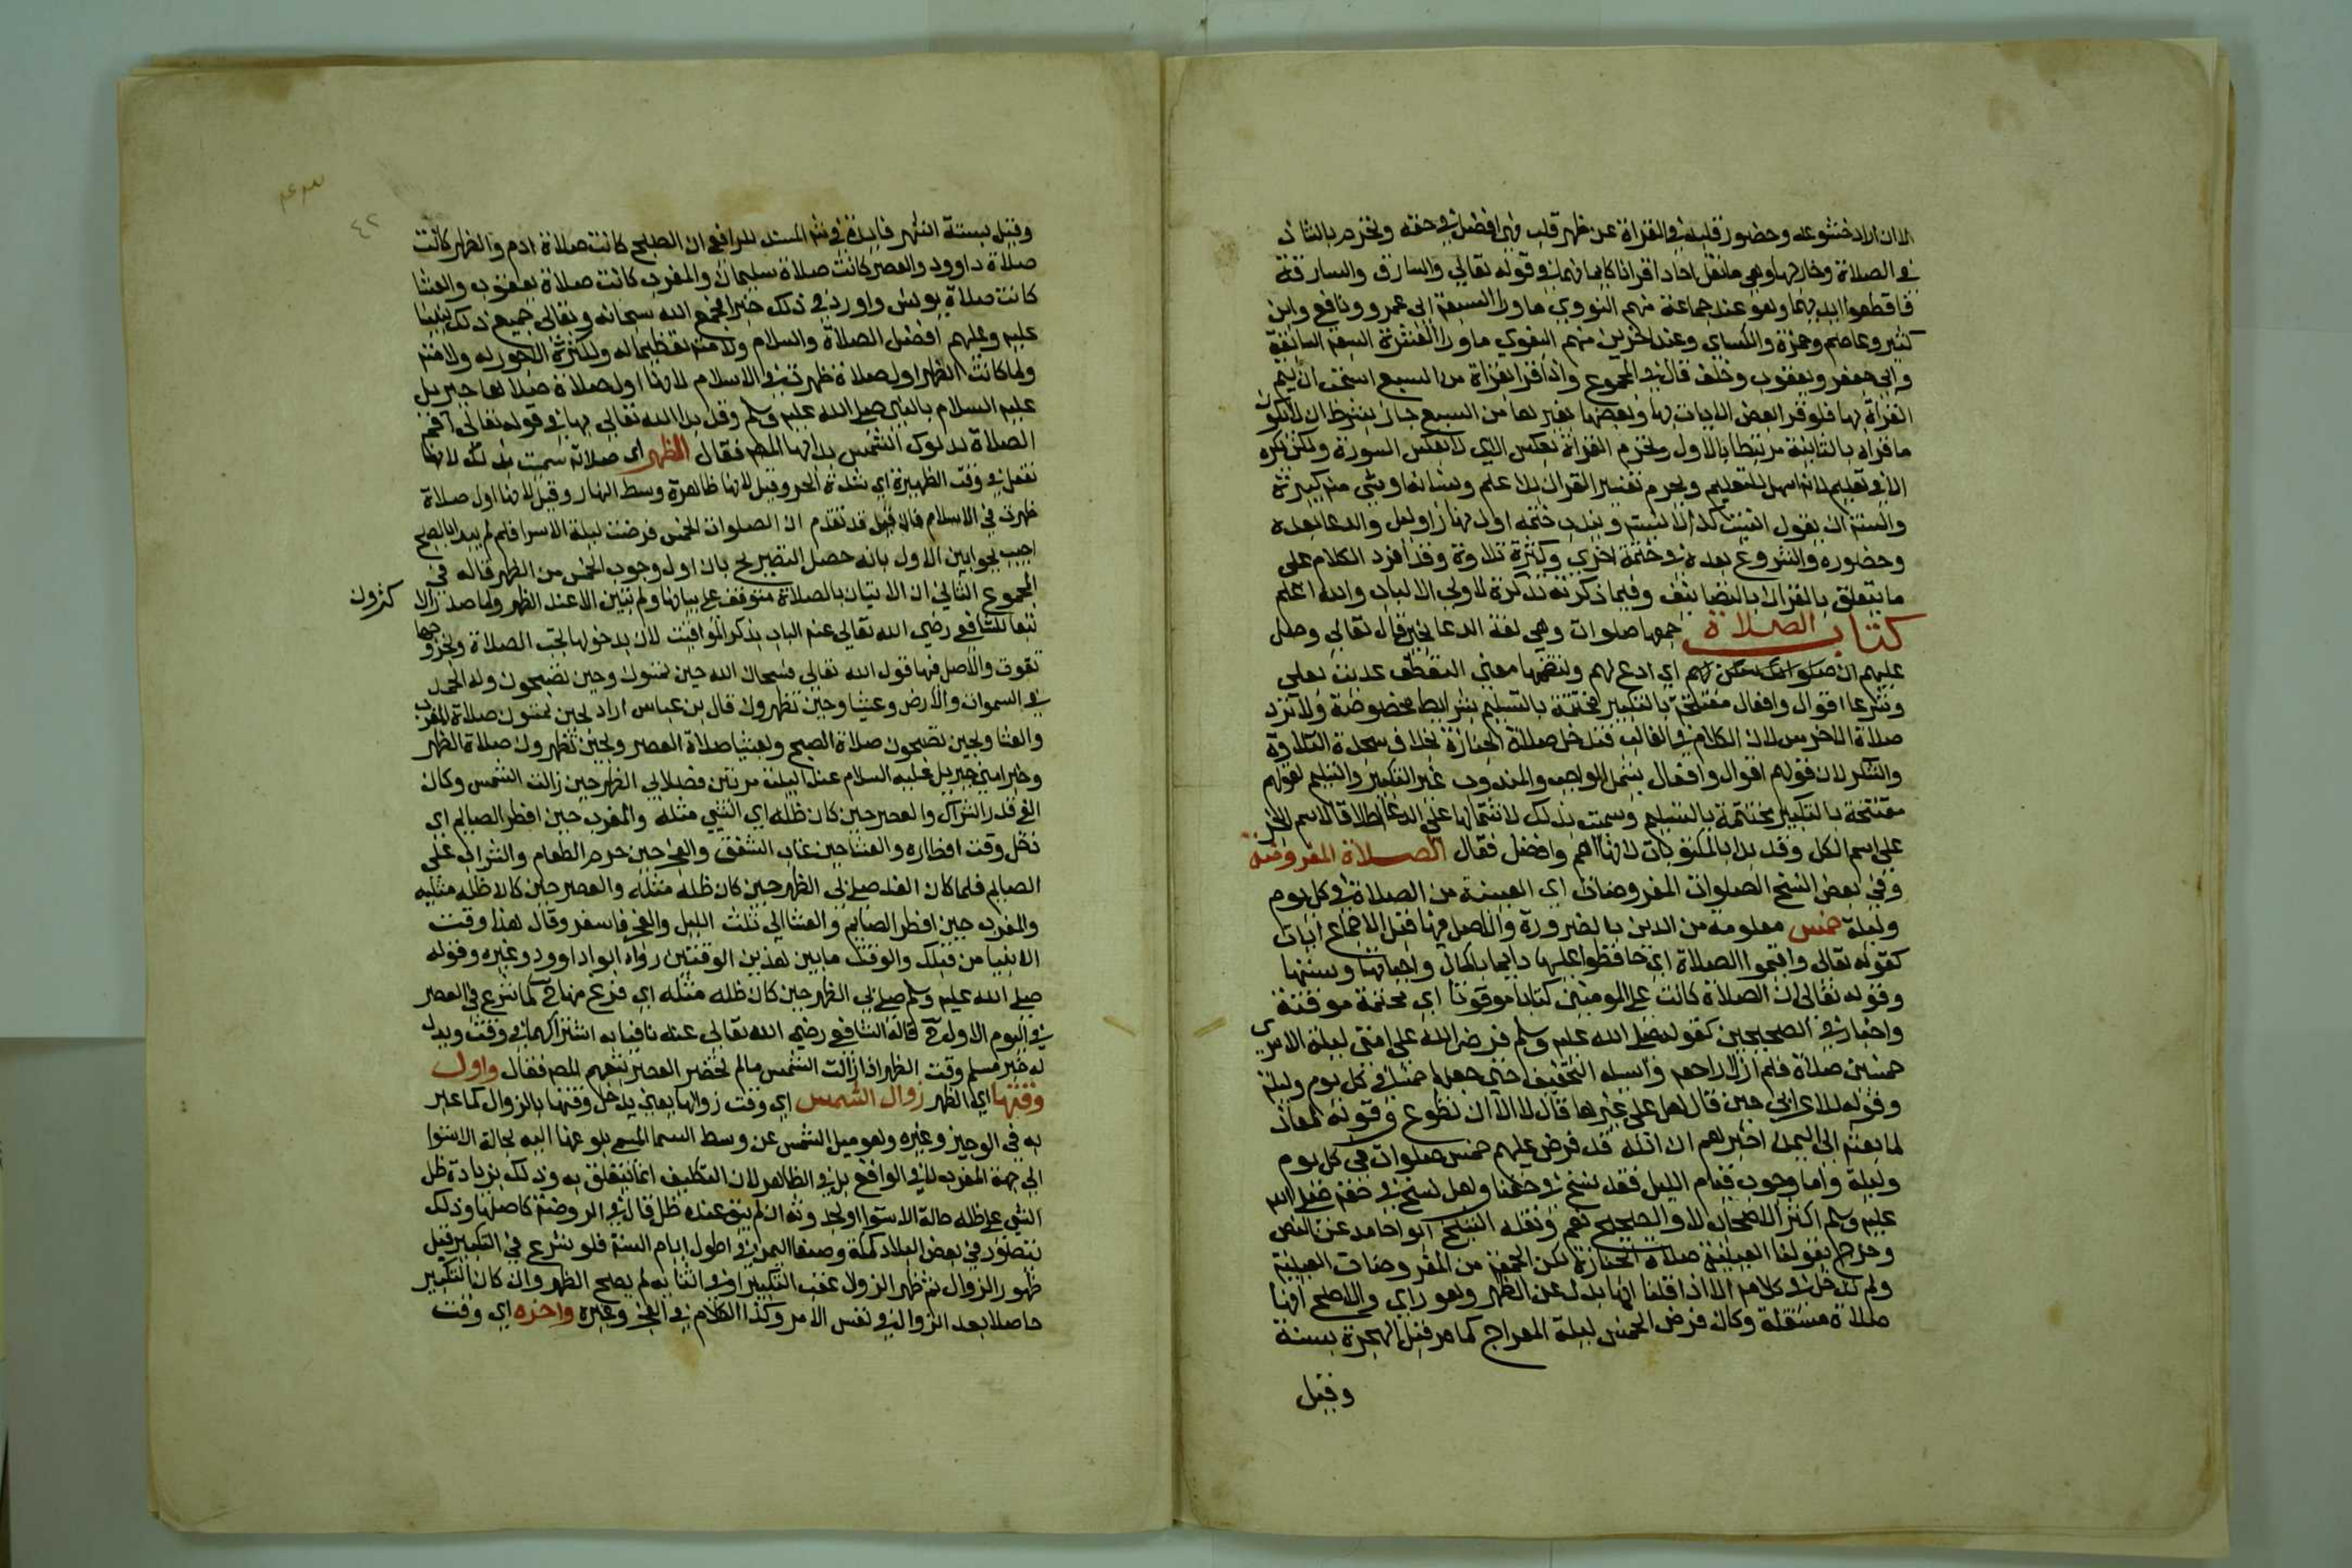 الا ان زاد خشوعه وحضور قلبه في القراة عن ظهر قلب فهي افضل في حقه وتحرم بالشاذ
في الصلاة وخارجها وهو ما نقل احادا قرانا كايمانهما في قوله تعالي والسارق والسارقة
فاقطعوا ايديهما وهو عند جماعة منهم النووي ما ورا السبعة ابي عمرو ونافع وابن
كثير وعاصم وحمزة والكساى وعند اخرين منهم البغوي ما ورا العشرة السبعة السابقة
وابي جعفر ويعقوب وخلف قال في المجموع واذا قرا بقراة من السبع استحب ان يتم
القراة بها فلو قرا بعض الايات بها وبعضها بغيرها من السبع جاز بشرط ان لا يكون
ما قراه بالثانية مرتبطا بالاول وتحرم القراة بعكس الاي لا بعكس السور ولكن تكره
الا في تعليم لانه اسهل للتعليم ويحرم تفسير القران بلا علم ونسيانه او شي منه كبيرة
والسنة ان يقول انسيت كذا لا نسيته ويندب ختمه اول نهار او ليل والدعا بعده
وحضوره والشروع بعده في ختمة اخري وكثرة تلاوة وقد افرد الكلام على
ما يتعلق بالقران بالتصانيف وفيما ذكرته تذكرة لاولي الالباب والله اعلم
كتاب الصلاة جمعها صلوات وهي لغة الدعا بخير قال تعالي وصل
عليهم ان صلواتك سكن لهم اي ادع لهم ولتضمنها معني التعطف عديت بعلي
وشرعا اقوال وافعال مفتتحة بالتكبير مختتمة بالتسليم بشرايط مخصوصة ولا ترد
صلاة الاخرس لان الكلام في الغالب فتدخل صلاة الجنازة بخلاف سجدة التلاوة
والشكر لان قولهم اقوال وافعال يشمل الواجب والمندوب غير التكبير والتسليم لقولهم
مفتتحة بالتكبير مختتمة بالتسليم وسميت بذلك لاشتمالها على الدعا اطلاقا لاسم الجز
على اسم الكل وقد بدا بالمكتوبات لانها اهم وافضل فقال الصلاة المفروضة
وفي بعض النسخ الصلوات المفروضات اي العينية من الصلاة في كل يوم
وليلة خمس معلومة من الدين بالضرورة والاصل فيها قبل الاجماع ايات
كقوله تعالى واقيموا الصلاة اي حافظوا عليها دايما باكمال واجباتها وسننها
وقوله تعالى ان الصلاة كانت على المومنين كتابا موقوتا اي محتمة موقتة
واخبار في الصحيحين كقوله صلى الله عليه وسلم فرض الله على امتي ليلة الاسرى
خمسين صلاة فلم ازل اراجعه واساله التخفيف حتى جعلها خمسا في كل يوم وليلة
وقوله للاعرابي حين قال هل على غيرها قال لا الا ان تطوع وقوله لمعاذ
لما بعثه الى اليمن اخبرهم ان الله قد فرض عليهم خمس صلوات في كل يوم
وليلة واما وجوب قيام الليل فقد نسخ في حقنا وهل نسخ في حقه صلى الله
عليه وسلم اكثر الاصحاب لا والصحيح نعم ونقله الشيخ ابو احامد عن النص
وخرج بقولنا العينية صلاة الجنازة لكن الجمعة من المفروضات العينية
ولم تدخل في كلامه الا اذا قلنا انها بدل عن الظهر وهو راي والاصح انها
صلاة مستقلة وكان فرض الخمس ليلة المعراج كما مر قبل الهجرة بسنة
وقيل
٤٢
وقيل بستة اشهر فايدة في شرح المسند للرافعي ان الصبح كانت صلاة ادم والظهر كانت
صلاة داوود والعصر كانت صلاة سليمان والمغرب كانت صلاة يعقوب والعشا
كانت صلاة يونس واورد في ذلك خبرا فجمع الله سبحانه وتعالى جميع ذلك لنبينا
عليه وعليهم افضل الصلاة والسلام ولامته تعظيما له ولكثرة الاجور له ولامته
ولما كانت الظهر اول صلاة ظهرت في الاسلام لانها اول صلاة صلاها جبريل
عليه السلام بالنبي صلى الله عليه وسلم وقد بدا الله تعالي بها في قوله تعالى اقم
الصلاة لدلوك الشمس بدا بها المصـ فقال الظهر اى صلاته سميت بذلك لانها
تفعل في وقت الظهيرة اي شدة الحر وقيل لانها ظاهرة وسط النهار وقيل لانها اول صلاة
ظهرت في الاسلام فان قيل قد تقدم ان الصلوات الخمس فرضت ليلة الاسرا فلم لم يبدا بالصبح
اجيب بجوابين الاول بانه حصل التصريح بان اول وجوب الخمس من الظهر قاله في
المجموع الثاني ان الاتيان بالصلاة متوقف على بيانها ولم تبين الا عند الظهر ولما صدر الا كثرون
تبعا للشافعي رضي الله تعالى عنه الباب بذكر المواقيت لان بدخولها تجب الصلاة وبخروجها
تفوت والاصل فيها قوله الله تعالى فسبحان الله حين تمسون وحين تصبحون وله الحمد
في السموات والارض وعشيا وحين تظهرون قال بن عباس اراد بحين تمسون صلاة المغرب
والعشا وبحين تصبحون صلاة الصبح وبعشيا صلاة العصر وبحين تظهرون صلاة الظهر
وخبر امني جبريل عليه السلام عند البيت مرتين فصلا بي الظهر حين زالت الشمس وكان
الفي قدر الشراك والعصر حين كان ظله اي الشي مثله والمغرب حين افطر الصايم اي
دخل وقت افطاره والعشا حين غاب الشفق والفجر حين حرم الطعام والشراب على
الصايم فلما كان الغد صلى بي الظهر حين كان ظله مثله والعصر حين كان ظله مثليه
والمغرب حين افطر الصايم والعشا الى ثلث الليل والفجر فاسفر وقال هذا وقت
الانبيا من قبلك والوقت ما بين هذين الوقتين رواه ابو اداوود وغيره وقوله
صلى الله عليه وسلم صلى بي الظهر حين كان ظله مثله اي فرغ منها ح كما شرع في العصر
في اليوم الاول ح قاله الشافعي رضي الله تعالى عنه نافيا به اشتراكهما في وقت ويدل
له خبر مسلم وقت الظهر اذا زالت الشمس ما لم تحضر العصر فقال واول
وقتها اي الظهر زوال الشمس اي وقت زوالها يعني يدخل وقتها بالزوال كما عبر
به في الوجيز وغيره وهو ميل الشمس عن وسط السما المسمى بلوغها اليه بحالة الاستوا
الى جهة المغرب لا في الواقع بل في الظاهر لان التكليف انما يتعلق به وذلك بزيادة ظل
الشي على ظله حالة الاستوا او بحدوثه ان لم يبق عنده ظل قال في الروضة كاصلها وذلك
يتصور في بعض البلاد كمكة وصنعا اليمن في اطول ايام السنة فلو شرع في التكبير قبل
ظهور الزوال ثم ظهر الزوال عقب التكبير او في اثنايه لم يصح الظهر وان كان التكبير
حاصلا بعد الزوال في نفس الامر وكذا الكلام في الفجر وغيره واخره اي وقت